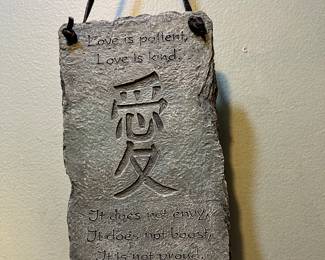 Love is patient,
Love is kind.
愛
It does not envy,
It does not boast,
It is not proud.